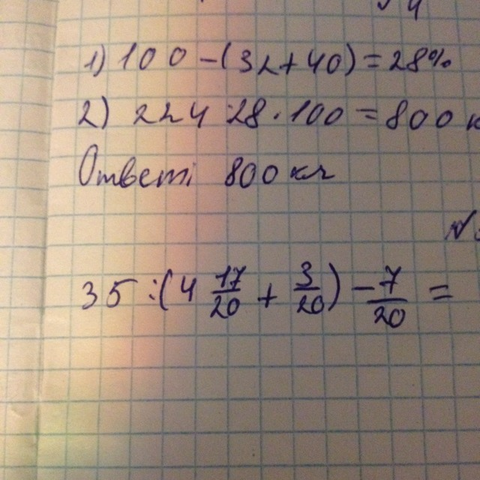 1) 100-(32+40)=28%
2) 224:28·100=800 к
Ответ: 800 кг
№
35:(4 17/20 + 3/20) - 7/20 =